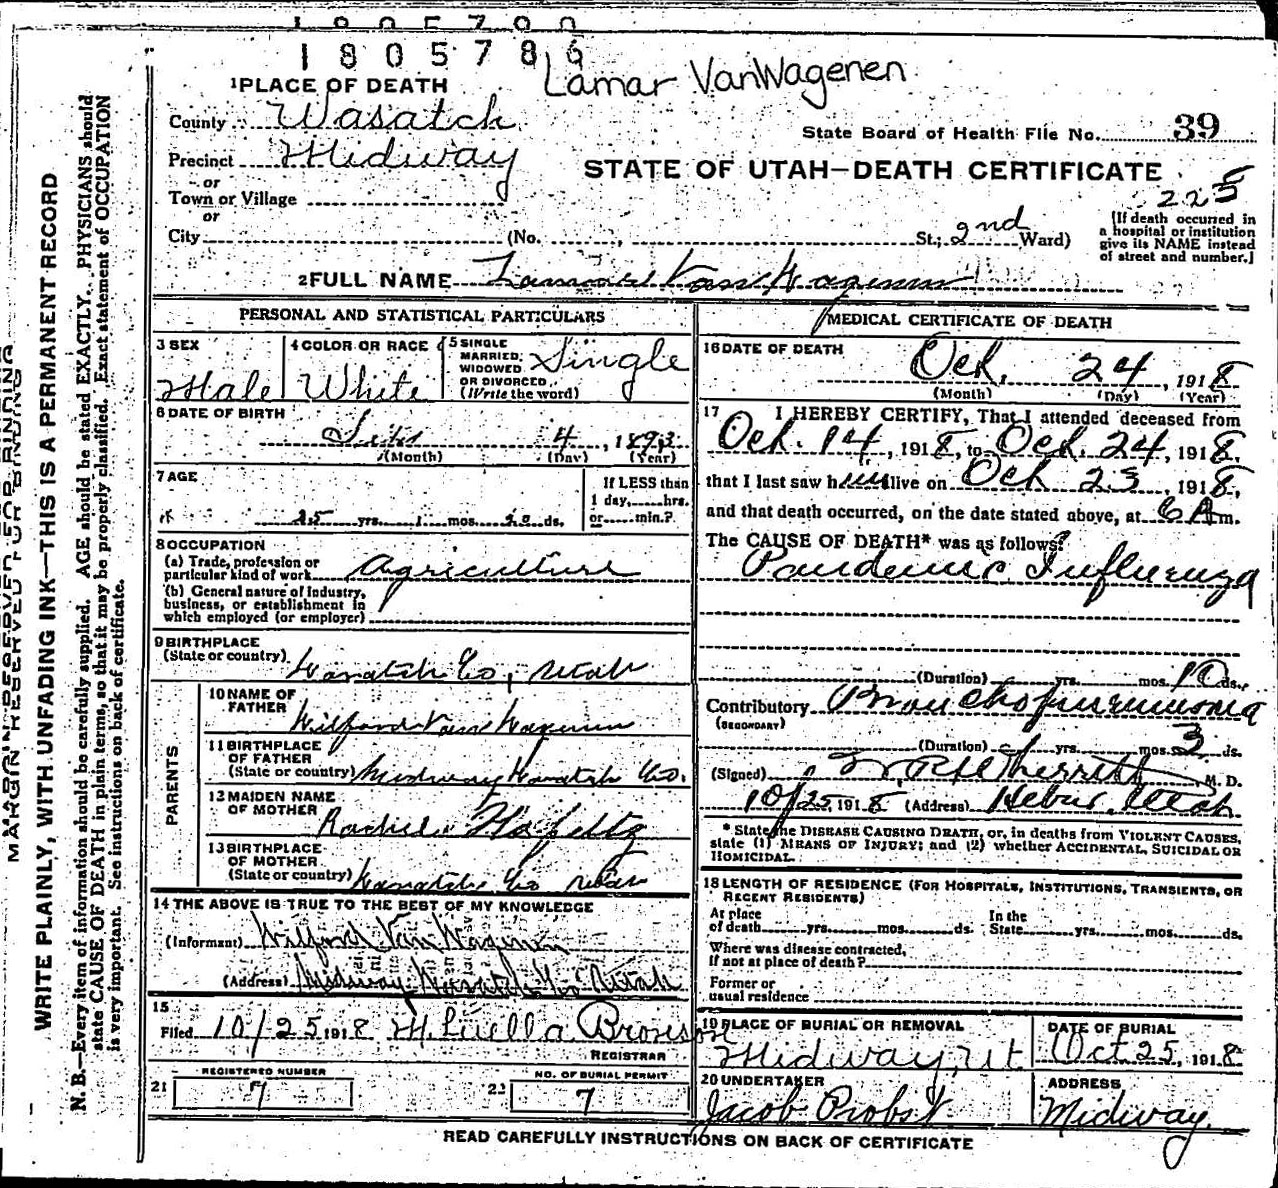 1805786
Lamar VanWagenen
1 PLACE OF DEATH
County Wasatch
State Board of Health File No. 39
Precinct Midway
STATE OF UTAH—DEATH CERTIFICATE
or
225
Town or Village
or
City (No. , St.; 2nd Ward)
(If death occurred in a hospital or institution give its NAME instead of street and number.)
2 FULL NAME Lamar Van Wagenen
PERSONAL AND STATISTICAL PARTICULARS
3 SEX Male
4 COLOR OR RACE White
5 SINGLE MARRIED, WIDOWED OR DIVORCED (Write the word) Single
6 DATE OF BIRTH
4, 1893
(Month) (Day) (Year)
7 AGE
25 yrs. 1 mos. 20 ds.
If LESS than 1 day, hrs. or min.?
8 OCCUPATION
(a) Trade, profession or particular kind of work Agriculture
(b) General nature of Industry, business, or establishment in which employed (or employer)
9 BIRTHPLACE
(State or country) Wasatch Co, Utah
PARENTS
10 NAME OF FATHER Wilford Van Wagenen
11 BIRTHPLACE OF FATHER (State or country) Midway Wasatch Co.
12 MAIDEN NAME OF MOTHER Rachel
13 BIRTHPLACE OF MOTHER (State or country) Wasatch Co Utah
14 THE ABOVE IS TRUE TO THE BEST OF MY KNOWLEDGE
(Informant) Wilford Van Wagenen
(Address) Midway Wasatch Co Utah
15
Filed 10/25 1918 M. Luella Bronson
REGISTRAR
21 REGISTERED NUMBER 7
22 NO. OF BURIAL PERMIT 7
MEDICAL CERTIFICATE OF DEATH
16 DATE OF DEATH
Oct. 24, 1918
(Month) (Day) (Year)
17 I HEREBY CERTIFY, That I attended deceased from
Oct. 14, 1918, to Oct. 24, 1918,
that I last saw him alive on Oct 23, 1918,
and that death occurred, on the date stated above, at 6 A m.
The CAUSE OF DEATH* was as follows:
Pandemic Influenza
(Duration) yrs. mos. 10 ds.
Contributory Bronchopneumonia
(SECONDARY)
(Duration) yrs. mos. 3 ds.
(Signed) W. R. Wherritt M. D.
10/25, 1918 (Address) Heber, Utah
* State the DISEASE CAUSING DEATH, or, in deaths from VIOLENT CAUSES, state (1) MEANS OF INJURY; and (2) whether ACCIDENTAL, SUICIDAL OR HOMICIDAL.
18 LENGTH OF RESIDENCE (FOR HOSPITALS, INSTITUTIONS, TRANSIENTS, OR RECENT RESIDENTS)
At place of death yrs. mos. ds. In the State yrs. mos. ds.
Where was disease contracted, if not at place of death?
Former or usual residence
19 PLACE OF BURIAL OR REMOVAL
Midway, Ut
DATE OF BURIAL
Oct 25, 1918
20 UNDERTAKER
Jacob Probst
ADDRESS
Midway.
READ CAREFULLY INSTRUCTIONS ON BACK OF CERTIFICATE
MARGIN RESERVED FOR BINDING
WRITE PLAINLY, WITH UNFADING INK—THIS IS A PERMANENT RECORD
N. B.—Every item of information should be carefully supplied. AGE should be stated EXACTLY. PHYSICIANS should
state CAUSE OF DEATH in plain terms, so that it may be properly classified. Exact statement of OCCUPATION
is very important. See instructions on back of certificate.